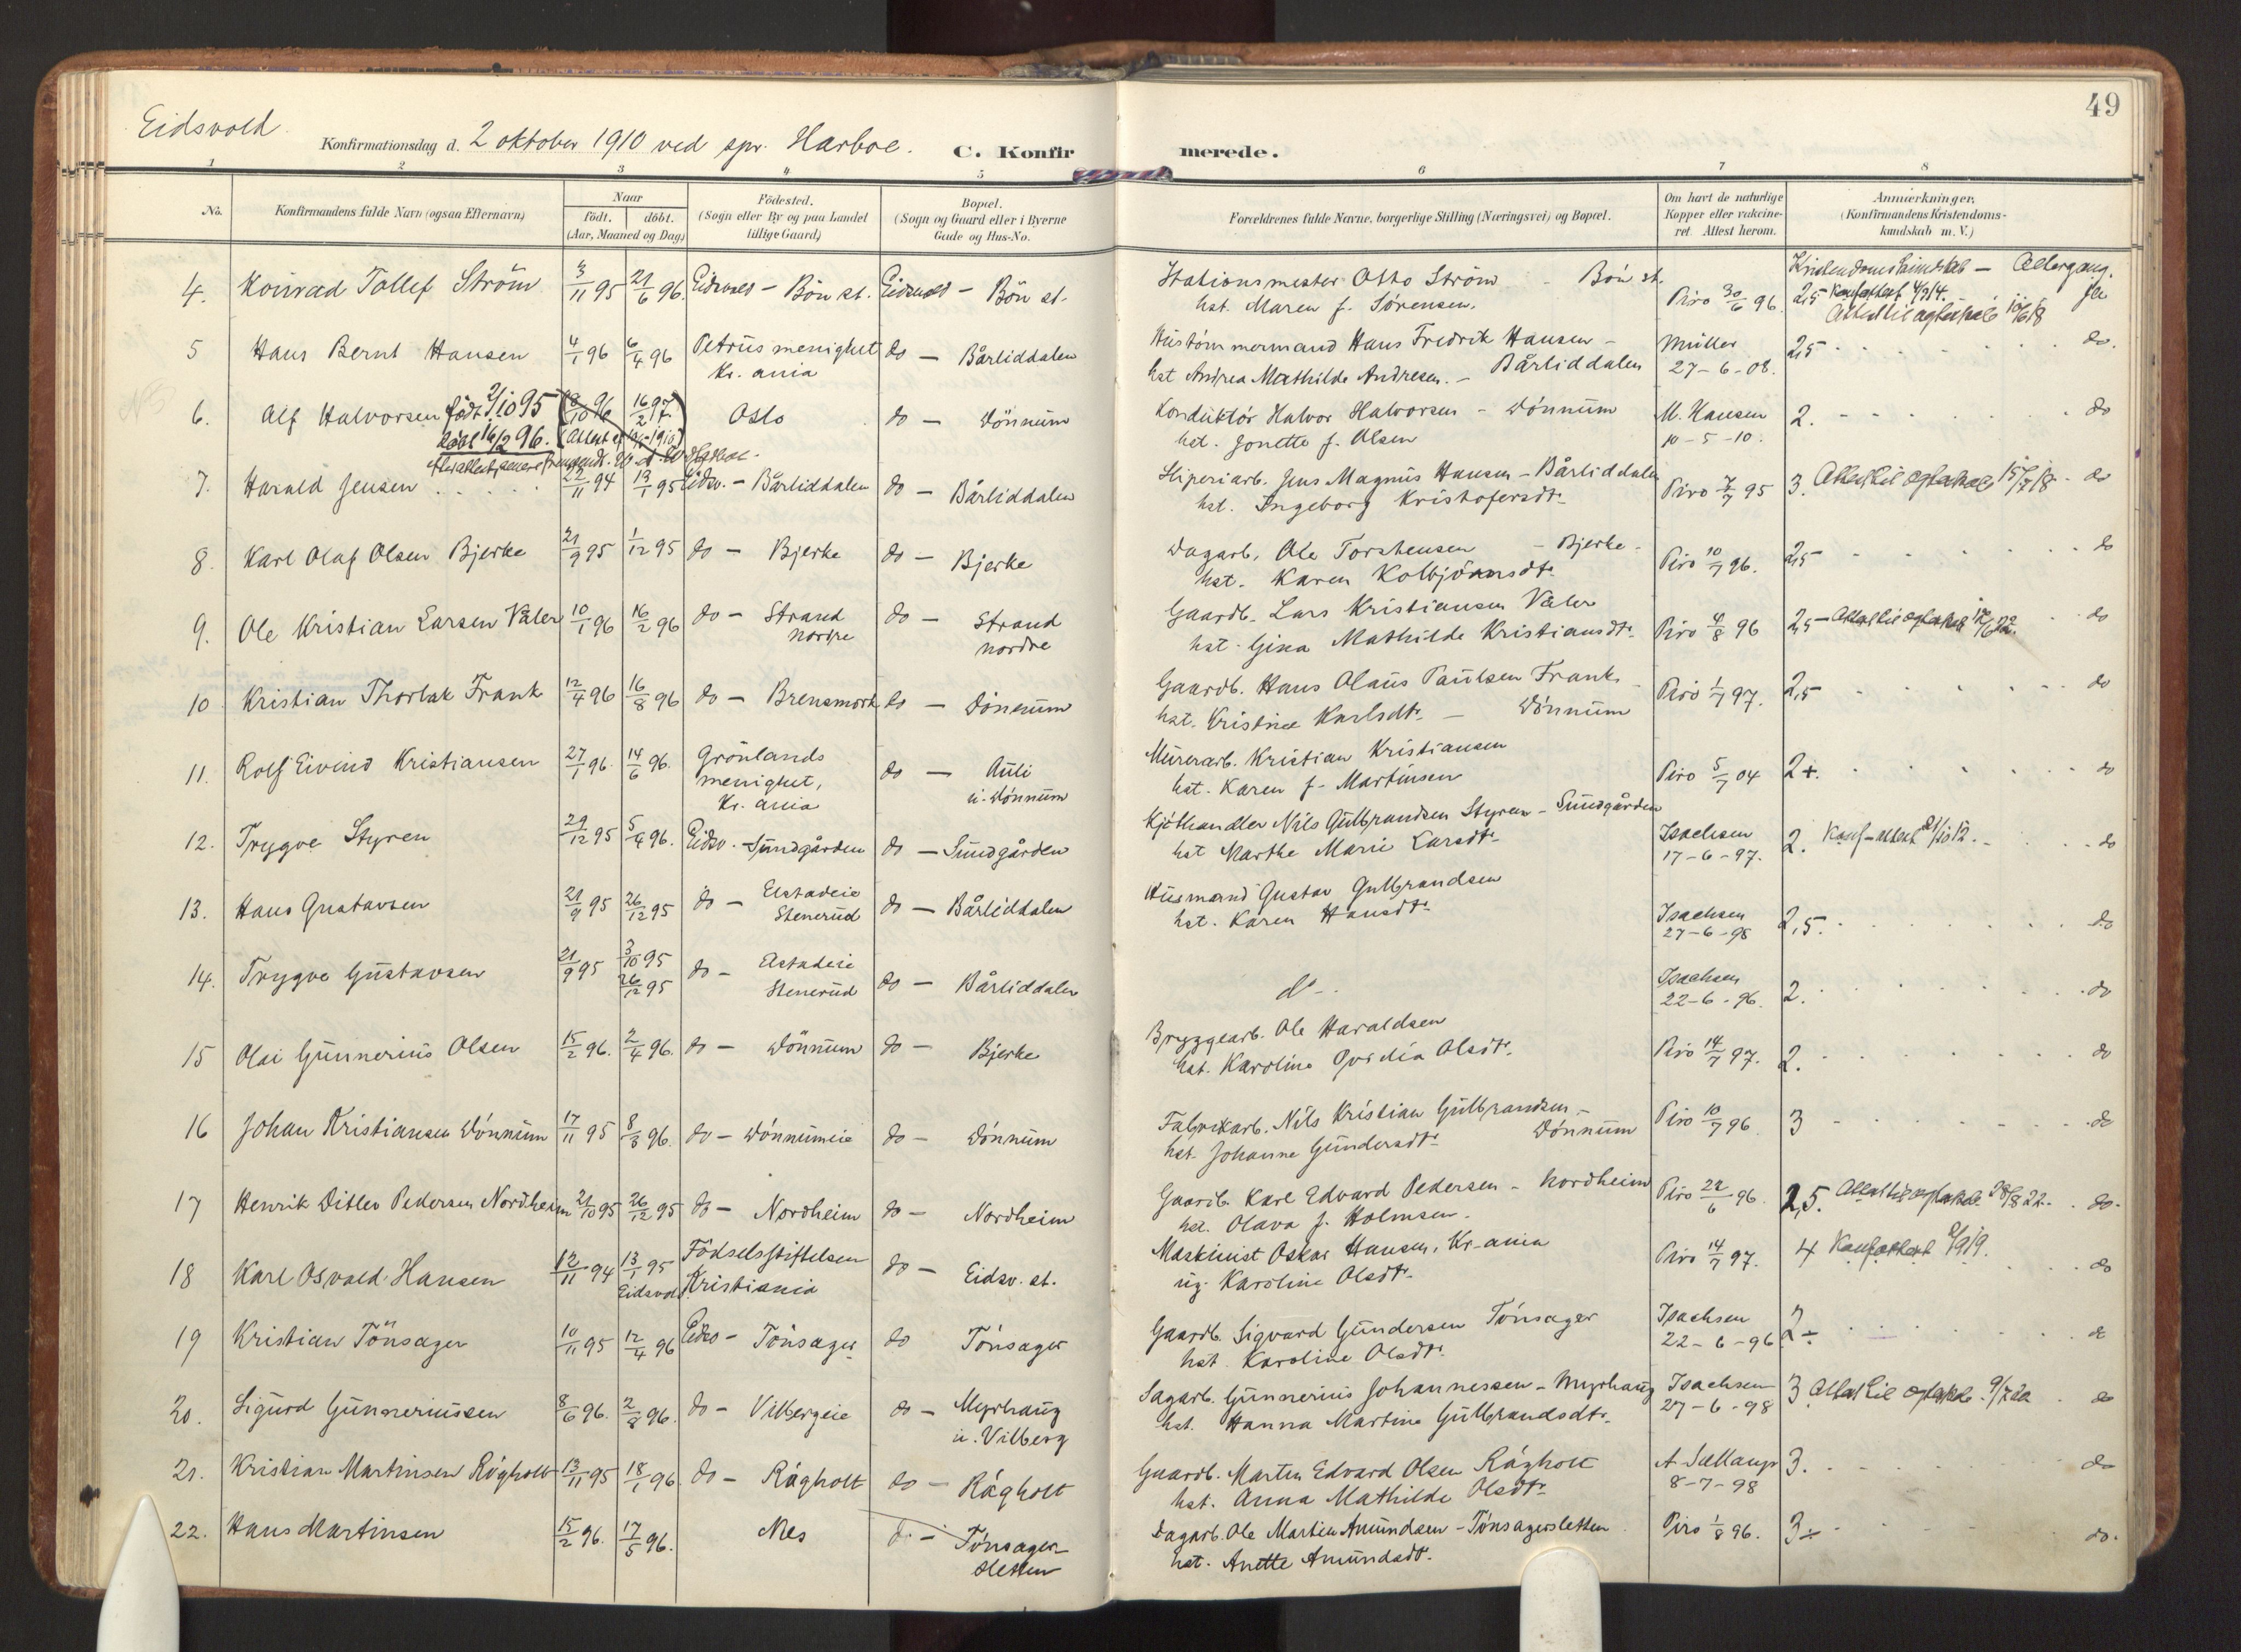 49
Eidsvold
Konfirmationsdag d. 2 oktober 1910 ved spr. Harboe. C. Konfirmerede.
1 2 3 4 5 6 7 8
No.
Konfirmandens fulde Navn (ogsaa Efternavn)
Naar
födt. döbt.
(Aar, Maaned og Dag)
Födested.
(Sogn eller By og paa Landet
tillige Gaard)
Bopæl.
(Sogn og Gaard eller i Byerne
Gade og Hus-No.
Forældrenes fulde Navne, borgerlige Stilling (Næringsvei) og Bopæl.
Om havt de naturlige
Kopper eller vakcine-
ret. Attest herom.
Anmærkninger.
(Konfirmandens Kristendoms-
kundskab m. V.)
Kristendomskundskab — Altergang.
4. Konrad Tollef Ström 3/11 95 21/6 96. Eidsvold — Bön st. Eidsvold — Bön st. Stationsmester Otto Ström - Bön st. Piro 30/6 96 2,5 Konf.attest 4/9 14. ja
hst. Maren f. Sørensen. Attest til ægteskab 10/6 18
5 Hans Bernt Hansen 4/1 96 6/4 96 Petrus menighet do — Bårliddalen Hustömmermand Hans Fredrik Hansen - Müller 2,5 do.
Kr. ania hst Andrea Mathilde Andresen. - Bårliddalen 27-6-08.
6. Alf Halvorsen født 2/10 95 8/10 96 16/2 97 Oslo do — Dönnum Konduktör Halvor Halvorsen - Dönnum M. Hansen 2. do
döbt 16/2 96. hst. Jonette f. Olsen 10-5-10.
7. Harald Jensen 22/11 94 13/1 95 Eidsv. - Bårliddalen do — Bårliddalen Sliperiarb. Jens Magnus Hansen - Bårliddalen Piro 7/7 95 3. Attest til ægteskab 15/7 18 do
hst. Ingeborg Kristofersdtr.
8. Karl Olaf Olsen Bjerke 21/9 95 1/12 95 do — Bjerke do — Bjerke Dagarb. Ole Torstensen - Bjerke - Piro 10/7 96. 2,5 do
hst. Karen Kolbjörnsdtr.
9. Ole Kristian Larsen Våler 10/1 96 16/2 96 do — Strand nordre do — Strand nordre Gaardb. Lars Kristiansen Våler Piro 4/8 96 2,5 Attest til ægteskab do
hst. Gina Mathilde Kristiansdtr.
10 Kristian Thorlak Frank 12/4 96 16/8 96 do — Brensmork do — Dönnum Gaardb. Hans Olaus Paulsen Frank - Piro 1/7 97. 2,5 do
hst. Kristine Karlsdtr. - Dönnum
11. Rolf Eivind Kristiansen 27/1 96. 14/6 96. Grönlands menighet, Kr. ania do — Auli u. Dönnum Murerarb. Kristian Kristiansen Piro 5/7 04 2+. do
hst. Karen f. Martinsen
12. Trygve Styren 29/12 95 5/4 96. Eidsv. - Sundgården do — Sundgården Kjöthandler Nils Gulbrandsen Styren - Sundgården Isachsen 2. Konf-attest 21/10 12. do
hst Marthe Marie Larsdtr. 17-6-97.
13. Hans Gustavsen 21/9 95 26/12 95 do — Elstadeie Stenerud do — Bårliddalen Husmand Gustav Gulbrandsen Isachsen 2,5. do
hst. Karen Hansdtr. 27-6-98
14. Trygve Gustavsen 21/9 95 3/10 95 do - Elstadeie do — Bårliddalen do - Isachsen 2. do
26/12 95 Stenerud 22-6-96.
15 Olai Gunnerius Olsen 15/2 96. 2/4 96. do — Dönnum do — Bjerke Bryggearb. Ole Haraldsen Piro 14/7 97. 2. do
hst. Karoline Ovidia Olsdtr.
16 Johan Kristiansen Dönnum 17/11 95 8/3 96. do — Dönnumeie do — Dönnum Fabrikarb. Nils Kristian Gulbrandsen - Piro 10/7 96 3 do
hst. Johanne Gundersdtr. Dönnum
17 Henrik Ditlev Pedersen Nordheim 21/10 95 26/12 95 do — Nordheim do — Nordheim Gaardb. Karl Edvard Pedersen - Nordheim Piro 22/6 96. 2,5. Attest til ægteskab 28/8 22. do.
hst. Olava f. Holmsen.
18 Karl Osvald Hansen 12/11 94 13/1 95 Eidsvold Födselsstiftelsen Kristiania do — Eidsv. st. Maskinist Oskar Hansen, Kr-ania Piro 14/7 97. 4 Konf.attest do
ug. Karoline Olsdtr.
19 Kristian Tönsager 10/11 95 12/4 96 Eidsv - Tönsager do Tönsager Gaardb. Sigvard Gundersen Tönsager Isachsen 2÷ do
hst. Karoline Olsdtr. 22-6-96
20. Sigurd Gunneriussen 8/6 96. 2/8 96. do — Vilbergeie do — Myrhaug u. Vilberg Sagarb. Gunnerius Johannessen - Myrhaug Isachsen 3 Attest til ægteskab do
hst. Hanna Martine Gulbrandsdtr. 27-6-98
21. Kristian Martinsen Rågholt 13/11 95 18/1 96. do — Rågholt do — Rågholt Gaardb. Martin Edvard Olsen Rågholt 3. do
hst. Anna Mathilde Olsdtr. 8-7-98
22. Hans Martinsen 15/2 96. 17/5 96. Nes do - Tönsagersletten Dagarb. Ole Martin Amundsen - Tönsagersletten Piro 1/8 96. 3÷ do.
hst. Anette Amundsdtr.